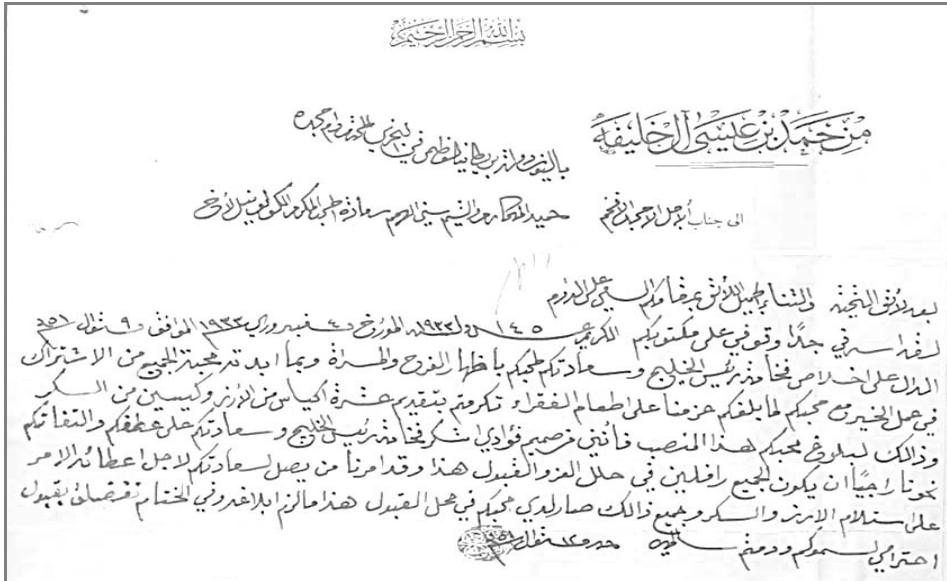 بسم الله الرحمن الرحيم
من حمد بن عيسى آل خليفة
الى جناب الأجل الامجد الافخم حميد المكارم والشيم سني الهمم سعادة المحب المكرم الكولونيل لوخ
باليوز دولة بريطانيا العظمى في البحرين المحترم دام مجده
بعد لائق التحية والثناء الجميل اللائق بمقامكم السامي على الدوام
لقد اسرني جدًا وقوفي على مكتوبكم الكريم عـ ١٤٥ سنة ١٩٣٣ المورخ ٤ فبروري ١٩٣٣ الموافق ٩ شوال ٣٥١
الدال على اخلاص فخامة رئيس الخليج وسعادتكم لمحبكم باظهار الفرح والمسرة وبما ابدته محبة الجميع من الاشتراك
في عمل الخير مع محبكم لما بلغكم عزمنا على اطعام الفقراء تكرمتم بتقديم عشرة اكياس من الارز وكيسين من السكر
وذالك لبلوغ محبكم هذا المنصب فانني من صميم فؤادي اشكر فخامة رئيس الخليج وسعادتكم على عطفكم والتفاتكم
نحونا راجيًا ان يكون الجميع رافلين في حلل العز والقبول هذا وقد امرنا من يصل لسعادتكم لاجل اعطائه الامر
على استلام الارز والسكر وجميع ذالك صار لدي محبكم في محل القبول هذا ما لزم ابلاغه وفي الختام تفضلوا بقبول
احترامي لسموكم ودمتم سالمين حرر ١٢ شوال ٣٥١